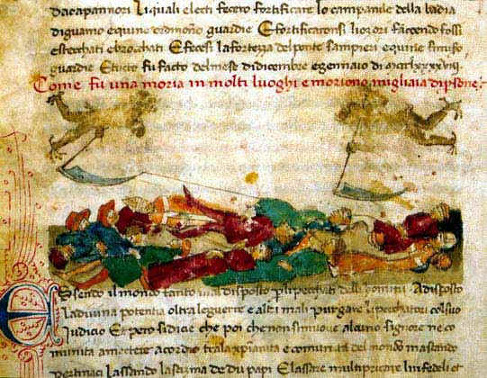 dacapannori Liquali electi fecero fortificare lo campanile della badia
diguamo equine ordinono guardie Efortificaronsi liorori faccendo fossi
estecchati ebrocchati Efecesi lafortessa delponte sampieri equine simiso
guardie Etucto fu facto delmese didicembre egennaio di
Come fu una moria in molti luoghi emoriono migliaia dipsone
Essendo ilmondo tanto mal disposto plipecchati delli homini Adisposto
Ladiuina potentia oltra leguerre ealtri mali purgare lipecchatori colsuo
Judicio Et pero sidice che poi che non si muove alcuno signore ne co
munita amectere acordio tralaxpianita ecomunita del mondo mastando
pertinaci Lassando lascisma de du papi Elassare multiplicare linfedeli et